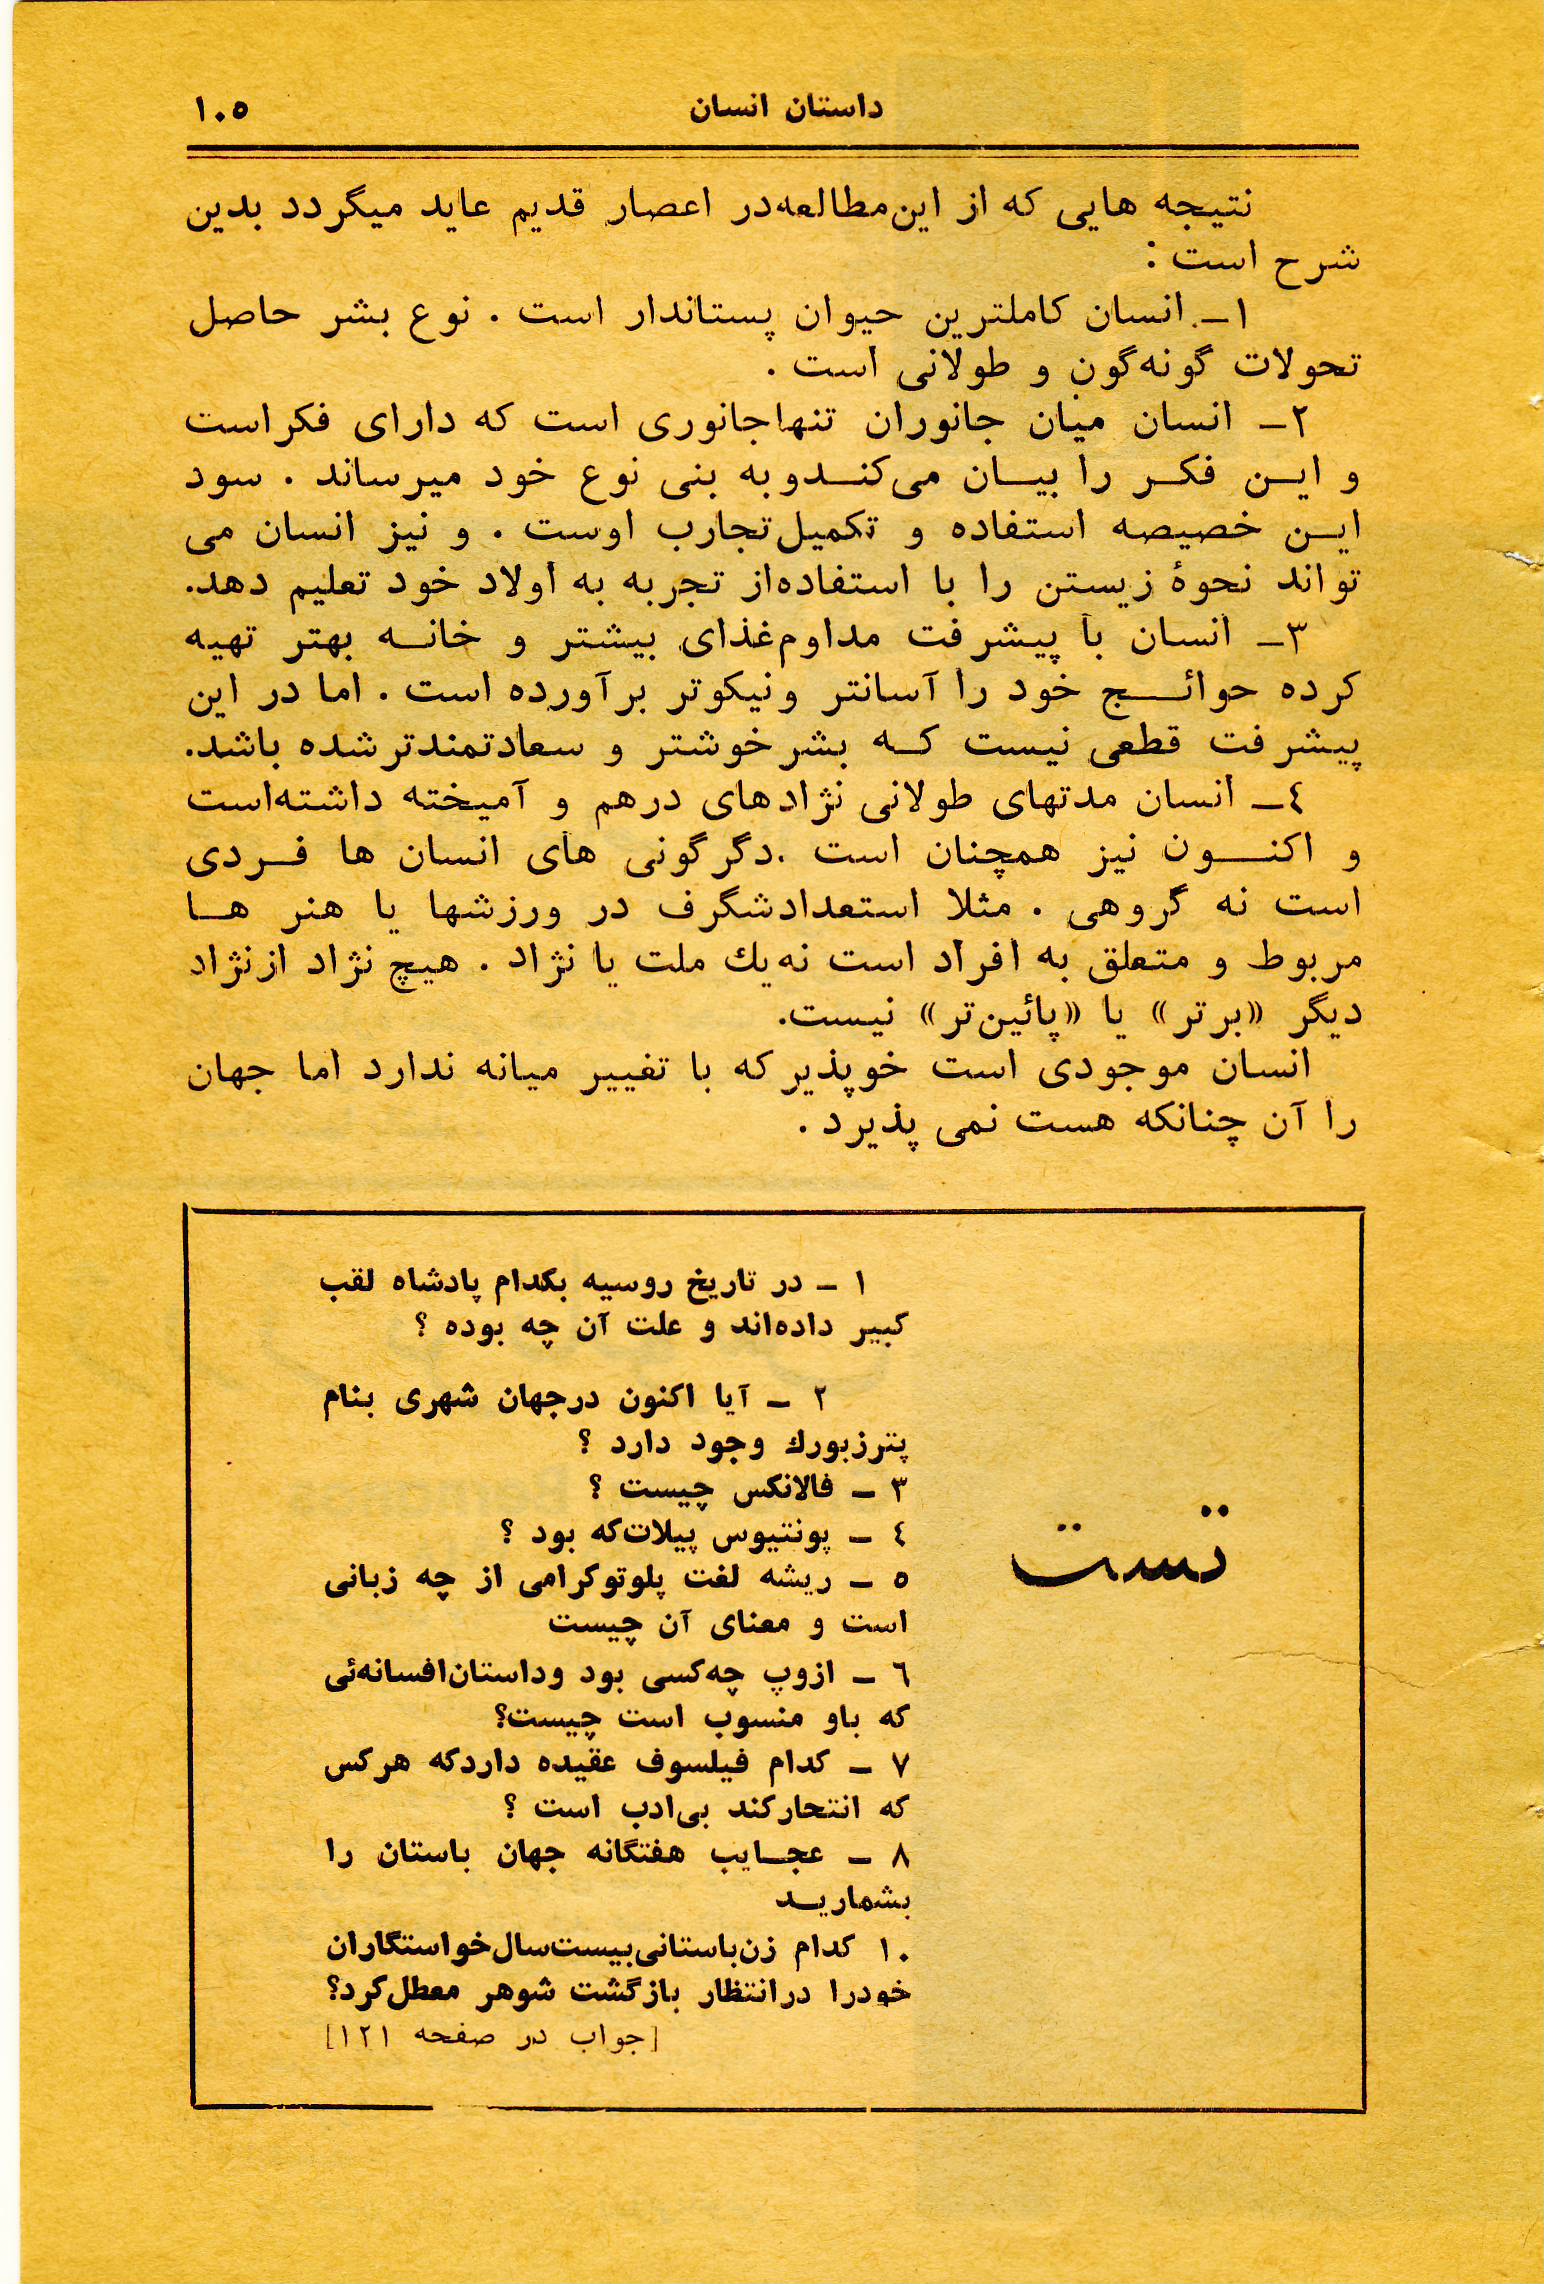 داستان انسان
۱۰۵
نتیجه هایی که از این‌مطالعه‌در اعصار قدیم عاید میگردد بدین
شرح است :
۱ـ انسان کاملترین حیوان پستاندار است . نوع بشر حاصل
تحولات گونه‌گون و طولانی است .
۲ـ انسان میان جانوران تنهاجانوری است که دارای فکراست
و ایـن فکـر را بیـان می‌کنـدوبه بنی نوع خود میرساند . سود
ایـن خصیصه استفاده و تکمیل‌تجارب اوست . و نیز انسان می
تواند نحوهٔ زیستن را با استفاده‌از تجربه به اولاد خود تعلیم دهد.
۳ـ انسان با پیشرفت مداوم‌غذای بیشتر و خانـه بهتر تهیه
کرده حوائـج خود را آسانتر ونیکوتر برآورده است . اما در این
پیشرفت قطعی نیست کـه بشرخوشتر و سعادتمندترشده باشد.
٤ـ انسان مدتهای طولانی نژادهای درهم و آمیخته داشته‌است
و اکنـون نیز همچنان است .دگرگونی های انسان ها فـردی
است نه گروهی . مثلا استعدادشگرف در ورزشها یا هنر هـا
مربوط و متعلق به افراد است نه‌یك ملت یا نژاد . هیچ نژاد ازنژاد
دیگر «برتر» یا «پائین‌تر» نیست.
انسان موجودی است خوپذیرکه با تغییر میانه ندارد اما جهان
را آن چنانکه هست نمی پذیرد .
تست
۱ ـ در تاریخ روسیه بکدام پادشاه لقب
کبیر داده‌اند و علت آن چه بوده ؟
۲ ـ آیا اکنون درجهان شهری بنام
پترزبورك وجود دارد ؟
۳ ـ فالانکس چیست ؟
٤ ـ پونتیوس پیلات‌که بود ؟
۵ ـ ریشه لغت پلوتوکرامی از چه زبانی
است و معنای آن چیست
٦ ـ ازوپ چه‌کسی بود وداستان‌افسانه‌ئی
که باو منسوب است چیست؟
۷ ـ کدام فیلسوف عقیده داردکه هرکس
که انتحارکند بی‌ادب است ؟
۸ ـ عجـایب هفتگانه جهان باستان را
بشماریـد
۱۰ کدام زن‌باستانی‌بیست‌سال‌خواستگاران
خودرا درانتظار بازگشت شوهر معطل‌کرد؟
[جواب در صفحه ۱۲۱]